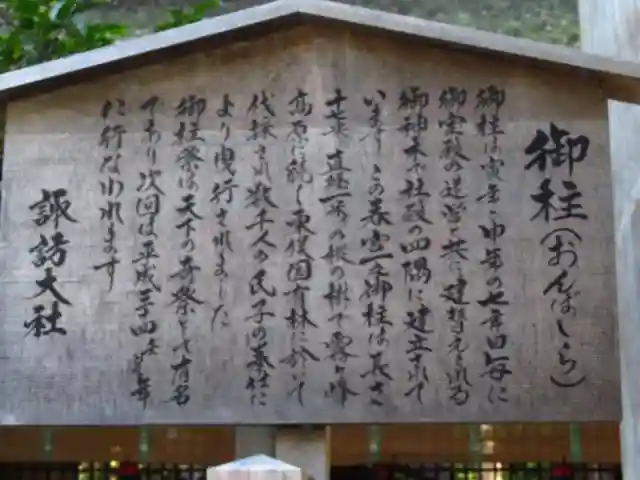 御柱(おんばしら)
御柱は寅年と申年の七年目毎に
御宝殿の造営と共に建替えられる
御神木で社殿の四隅に建立されて
います この春宮一之御柱は長さ
十七米 直径一米の樅の樹で霧ヶ峰
高原に続く東俣国有林に於いて
伐採され数千人の氏子の奉仕に
より曳行されました
御柱祭は天下の奇祭として有名
であり次回は平成二十四年
に行なわれます
諏訪大社